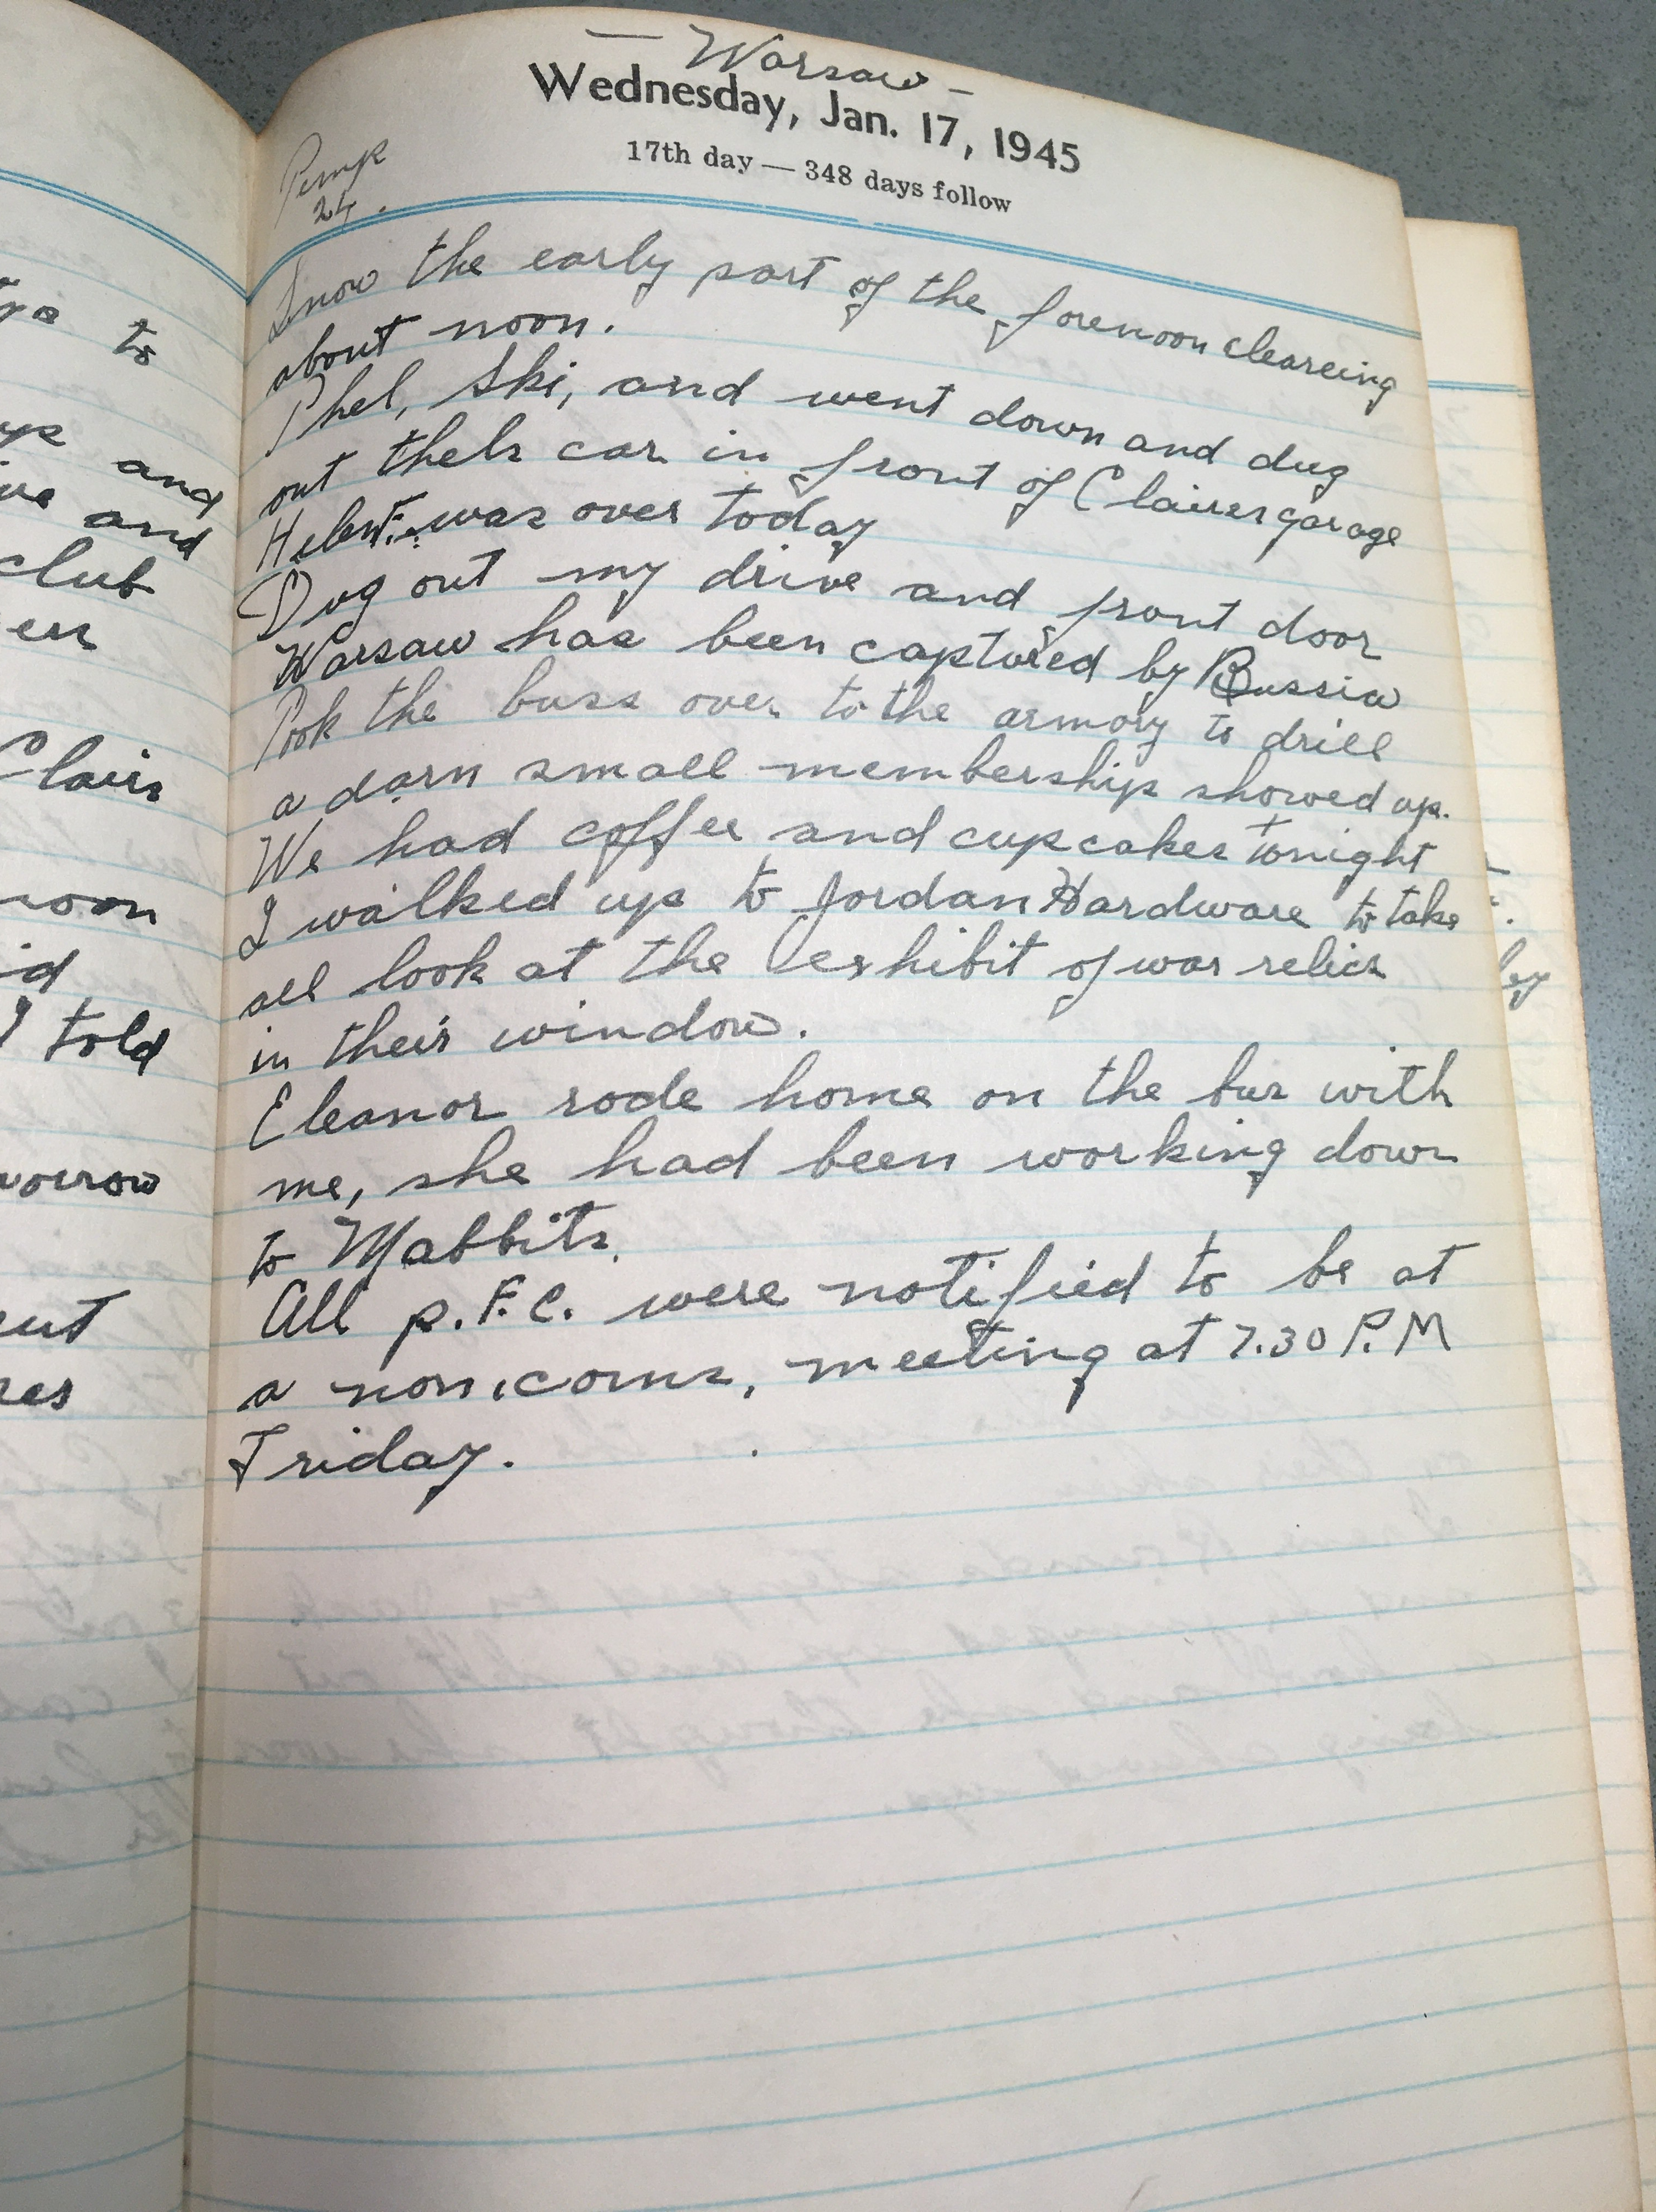 — Warsaw —
Wednesday, Jan. 17, 1945
17th day — 348 days follow
Temp
24.
Snow the early part of the forenoon cleareing
about noon.
Phel, Ski, and went down and dug
out thels car in front of Claires garage
Helen F. was over today
Dug out my drive and front door
Warsaw has been captured by Russia
Took the buss over to the armory to drill
a darn small membership showed up.
We had coffee and cupcakes tonight
I walked up to Jordan Hardware to take
all look at the exhibit of war relics
in their window.
Eleanor rode home on the bus with
me, she had been working down
to Mabbits.
All p.F.C. were notified to be at
a non.coms, meeting at 7.30 P.M
Friday.
to
and
and
club
Clair
noon
I told